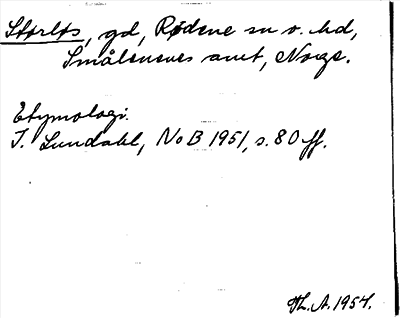 Størlts, gd, Rødene sn o. hd,
Smålenenes amt, Norge.
Etymologi.
I. Lundahl, NoB 1951, s. 80 ff.
Th. A. 1954.